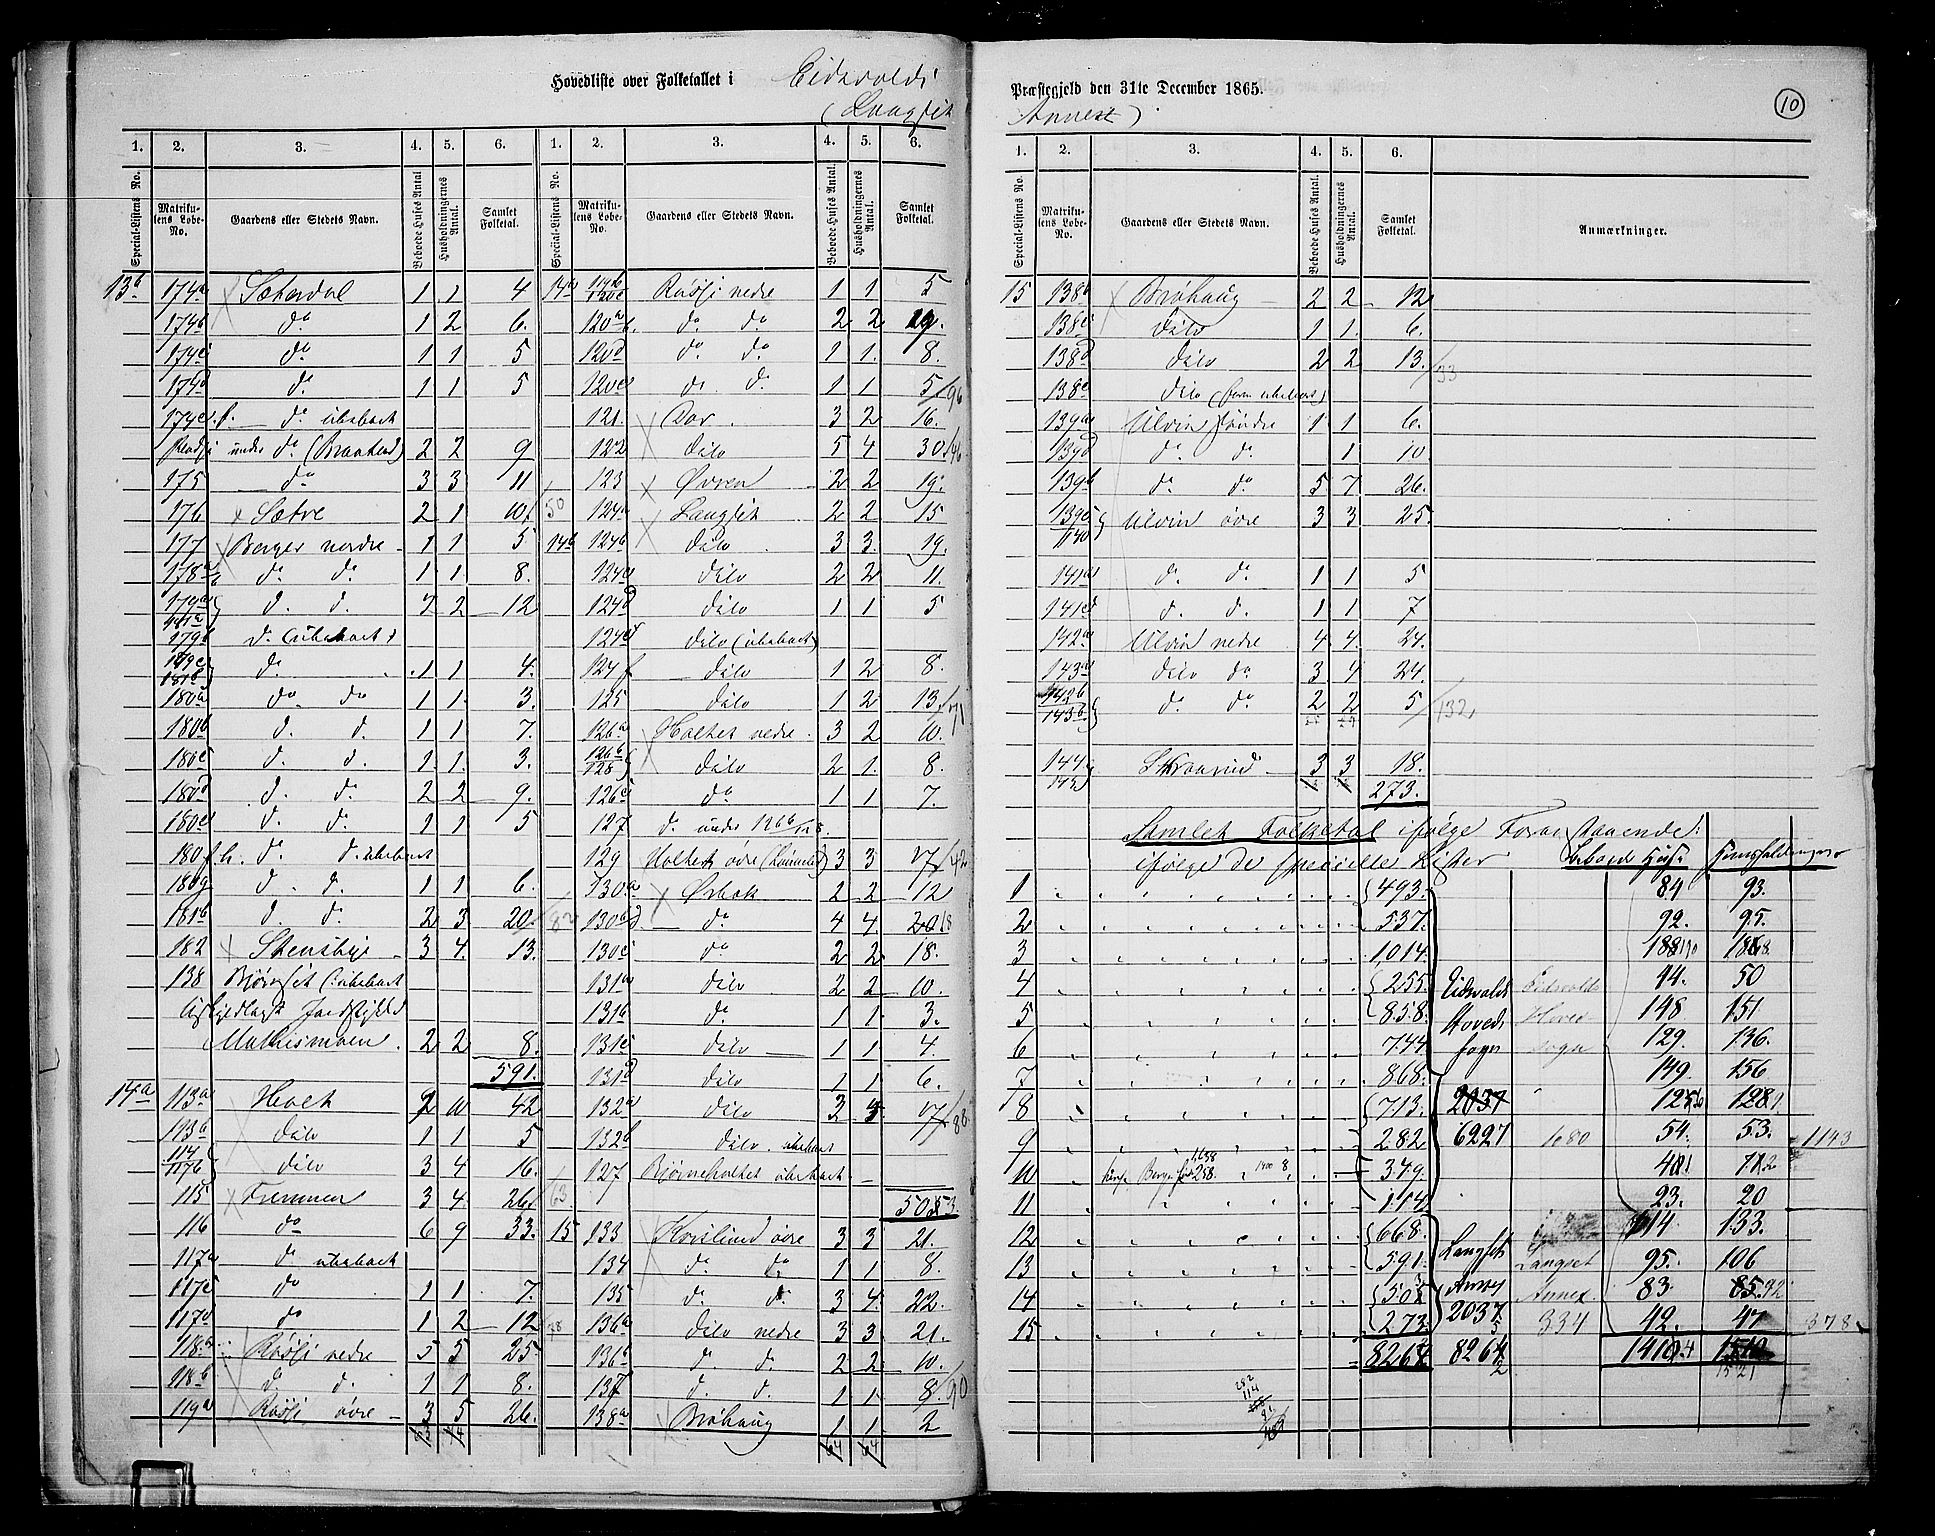 Hovedliste over Folketallet i Eidsvolds
Præstegjeld den 31te December 1865.
(Langset
Annext)
10
1. 2. 3. 4. 5. 6. 1. 2. 3. 4. 5. 6.
Special-Listens No. Matrikulens Løbe-No. Gaardens eller Stedets Navn. Beboede Huses Antal. Husholdningernes Antal. Samlet Folketal. Special-Listens No. Matrikulens Løbe-No. Gaardens eller Stedets Navn. Beboede Huses Antal. Husholdningernes Antal. Samlet Folketal.
13b 174a Sæterdal 1 1 4
174b do 1 2 6.
174c do 1 1 5
174d do 1 1 5
174e.f. do ubeboet
under do (Braatend) 2 2 9
175 do 3 3 11
176 Sætre 2 1 10 50
177 Berger nordre 1 1 5
178a b do do 1 1 8.
179a d. d. 2 12
179b do (ubeboet)
179c 181b do 1 1 4.
180a do do 1 1 3.
180b d. d. 1 1 7.
180c d. d. 1 1. 3.
180d d. d. 2 2 9.
180e d. d. 1 1 5
180f.h. do d. ubeboet
180g d. d. 1 1 6.
181b d. d. 2 3 20. 82
182 Stensbye 3 4. 13.
138 Bjørnset (ubeboet
Mathismoen. 2 2 8.
591.
14a 113a Hoel 10 42
113b dito 1 1 5
114 117b dito 3 4 16.
115 Fremmen 3 4. 26. 63
116 do 6 9 33.
117a do ubeboet
117c do 1 1 7.
117d do 1 2 12 78
118a Røise nedre 5 5 25.
118b d. d. 1 1 8.
119a Røise øvre 3 5 26.
14a 120c Røise nedre 1 1 5
120a do do 2 2 19.
120d do do 1 1. 8.
120e d. d. 1 1 5 96
121. Dor. 3 2 16.
122 dito 5 4 30. 46
123 Øvren 2 2 19.
124a Langset 2 2 15
14b 124b dito 3 3. 19.
124c dito 2 2 11.
124d dito 1 1 5
124e dito (ubeboet)
124f dito 1 2 8.
125 dito 1 2 13. 71
126a Holtet nedre. 3 2 10.
126b 128 dito 2 1. 8.
126c do 1 1 7.
127 do under 126b/128
129 Holtet øvre 3 3 17 42
130a Ørbæk 2 2 12
130b d do 4 4 20 18
130c do 2 2 18.
131a dito 2 2 10.
131b do 1 1 3.
131c dito 1 1 4.
131d dito 1 1 6.
132a dito 17 88
132b dito ubeboet
127 Bjørneholtet ubeboet
503
15 133 Kvislund øvre 3 3 21.
134 do do 1 1 8.
135 do d. 3 4. 22.
136a dito nedre 3 3. 21.
136b d. d. 2 2. 10.
137 d. d. 1 1 8. 90
138a Brøhaug 1 1. 2
64 64
1. 2. 3. 4. 5. 6.
Special-Listens No. Matrikulens Løbe-No. Gaardens eller Stedets Navn. Beboede Huses Antal. Husholdningernes Antal. Samlet Folketal. Anmærkninger.
15 138b Brøhaug 2 2 12
138c dito 1 1. 6.
138d dito 2 2 13. 33
138e dito (ubeboet)
139a Ulvin søndre 1 1 6.
139d do do 1 10.
139b do do 5 7 26.
139c 140 Ulvin øvre 3 3 25.
141a d. d. 1 1 5
141d d. d. 1 1 7
142a Ulvin nedre 4 4. 24.
143a dito do 3 4 24.
142b 143b do do 2 2 5 132
144. 145. 3 3 18.
273.
Samlet Folketal ifølge Foranstaaende:
ifølge de specielle Lister beboede Huse Huusholdninger
1 493. 84 93.
2 537. 92. 95.
3 1,014. 188 190 186
4 255. 44. 50
5 858. 148 151
6 744. 129. 136.
7 868. 149. 156
8 713. 2037
9 282. 6227 1080 54. 53. 1143
10 258. 349.
11 114. 23. 20
12 668. 114 133.
13 591. 95. 106
14 503 83. 85. 92
15 273. 42. 47 378
Eidsvolds Hoved sogn
Eidsvolds Hoved sogn
Langset Annex 2037
Langset Annex 334
8264 8264 1410 1510
1521
282
114